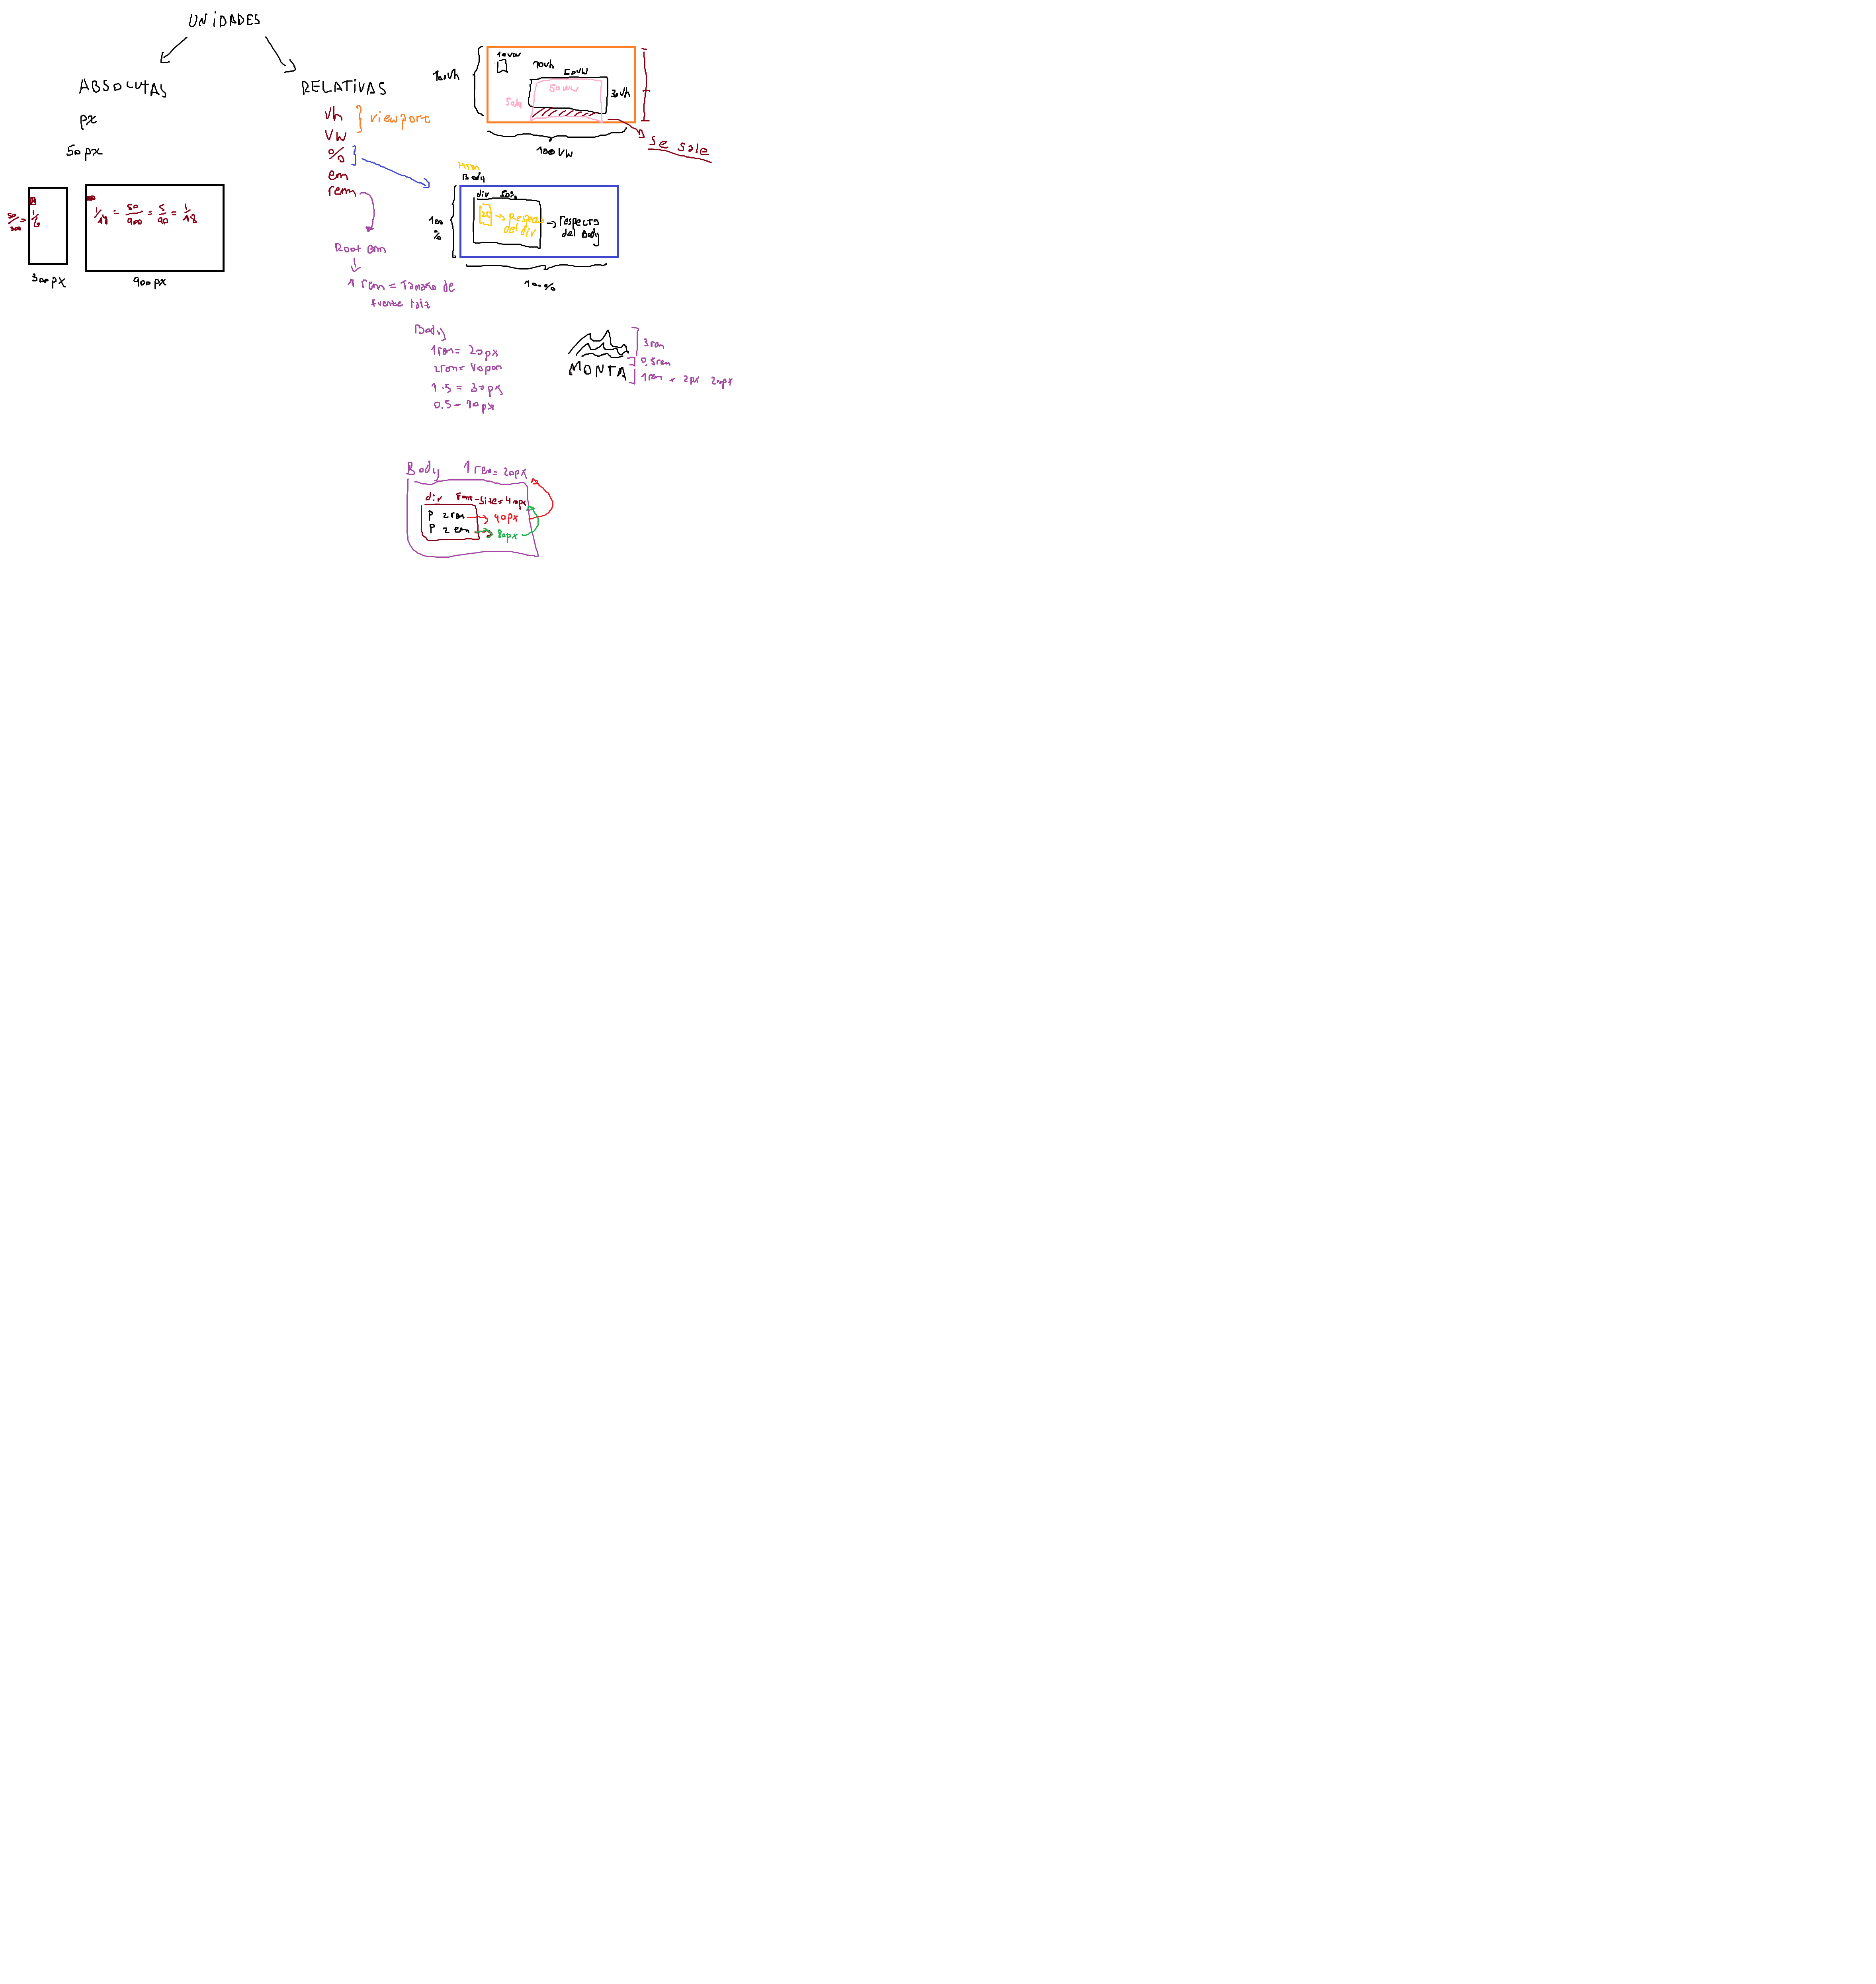 UNiDADES
ABSOLUTAS
px
50px
50/300 =
1/6
300px
1/18 = 50/900 = 5/90 = 1/18
900px
RELATIVAS
vh
vw
viewport
%
em
rem
Root em
1 rem = Tamaño de
fuente raiz
100vh
10vw
10vh
50vw
50vw
30vh
100vw
se sale
Body
div 50%
respecto
del div
respecto
del Body
100
%
100%
Body
1rem = 20px
1.5 = 30px
0.5 - 10px
MONTA
3rem
0,5rem
1rem
20px
Body 1 rem = 20px
div font-size = 40px
P 2 rem
40px
P 2 em
80px